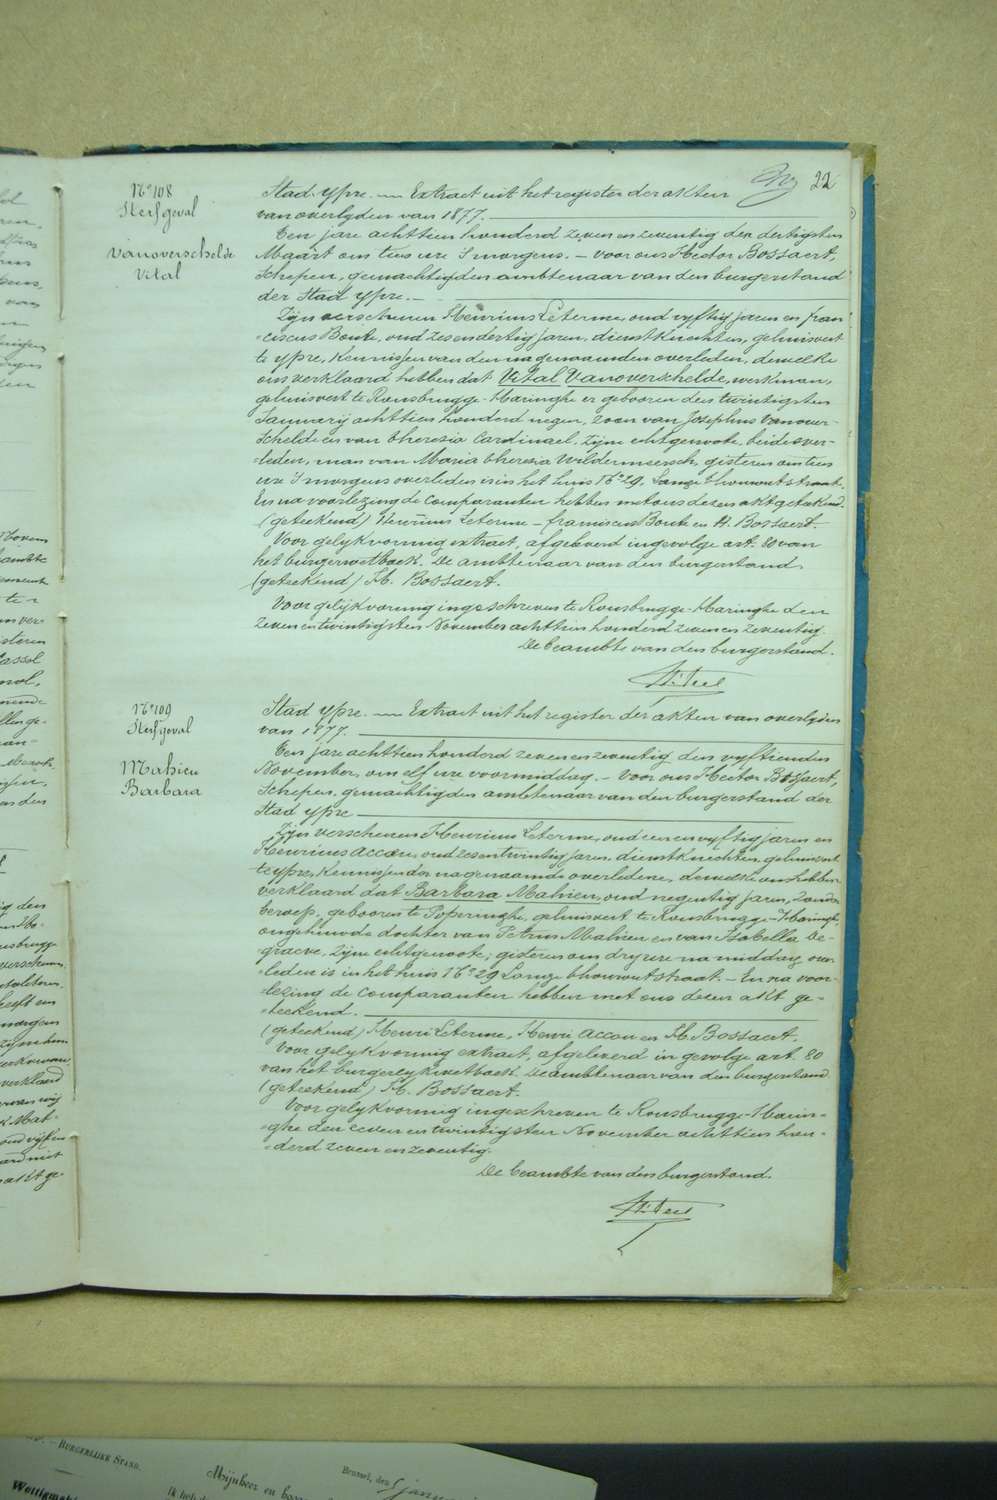 22
N° 108
Sterfgeval
Vanoverschelde
Vital
Stad Ypre. — Extract uit het register der akten
van overlyden van 1877.
Een jare achttien honderd zeven en zeventig den dertigsten
Maart om tien ure 's morgens. — voor ons Hector Bossaert,
Schepen, gemachtigden ambtenaar van den burgerstand
der Stad Ypre. —
Zijn verschenen Henricus Leterme, oud vyftig jaren en fran
ciscus Boute, oud zesendertig jaren, dienstknechten, gehuisvest
te ypre, kennissen van den nagenaamden overleden, dewelke
ons verklaard hebben dat Vital Vanoverschelde, werkman,
gehuisvest te Rousbrugge-Haringhe er gebooren den twintigsten
Januarij achttien honderd negen, zoon van Josephus Vanover-
schelde en van theresia Cardinael, zijne echtgenoote, beide over-
leden, man van Maria theresia Wildermeersch, gisteren om tien
ure 's morgens overleden is in het huis N° 29, Lange thouroutstraat.
En na voorlezing de comparanten hebben met ons dezen akt geteekend.
(geteekend) Henricus Leterme – franciscus Boute en H. Bossaert.
Voor gelykvormig extract, afgeleverd ingevolge art. 80 van
het burgerwetboek. De ambtenaar van den burgerstand.
(geteekend) H. Bossaert.
Voor gelijkvormig ingeschreven te Rousbrugge-Haringhe den
zeven en twintigsten November achttien honderd zeven en zeventig.
De beambte van den burgerstand.
N° 109
Sterfgeval
Mahieu
Barbara
Stad Ypre. — Extract uit het register der akten van overlyden
van 1877.
Een jare achttien honderd zeven en zeventig den vyftienden
November, om elf ure voormiddag. — Voor ons Hector Bossaert,
Schepen, gemachtigden ambtenaar van den burgerstand der
Stad Ypre
Zijn verschenen Henricus Leterme, oud een en vyftig jaren en
Henricus Accou, oud zesentwintig jaren, dienstknechten, gehuisvest
te ypre, kennissen der nagenaamde overledene, dewelke ons hebben
verklaard dat Barbara Mahieu, oud negentig jaren, zonder
beroep, gebooren te Poperinghe, gehuisvest te Rousbrugge-Haringhe
ongehuwde dochter van Petrus Mahieu en van Isabella De-
graeve, zijne echtgenoote; gisteren om dry ure namiddag over-
leden is in het huis N° 29 Lange thouroutstraat. — En na voor-
lezing de comparanten hebben met ons dezen akt ge-
teekend.
(geteekend) Henri Leterme, Henri Accou en H. Bossaert.
Voor gelykvormig extract, afgeleverd in gevolge art. 80
van het burgerlyk wetboek. De ambtenaar van den burgerstand
(geteekend) H. Bossaert.
Voor gelykvormig ingeschreven te Rousbrugge-Harin-
ghe den zeven en twintigsten November achttien hon-
derd zeven en zeventig.
De beambte van den burgerstand.
BURGERLIJKE STAND.
Brussel, den 5 janu
Mijnheer en